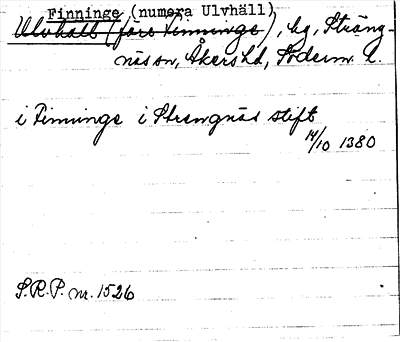 Finninge (numera Ulvhäll)
Ulvhäll (förr Finninge), hg, Sträng-
näs sn, Åkers hd, Söderm. l.
i Finninge i Strengnäs stift
14/10 1380
S.R.P. nr. 1526